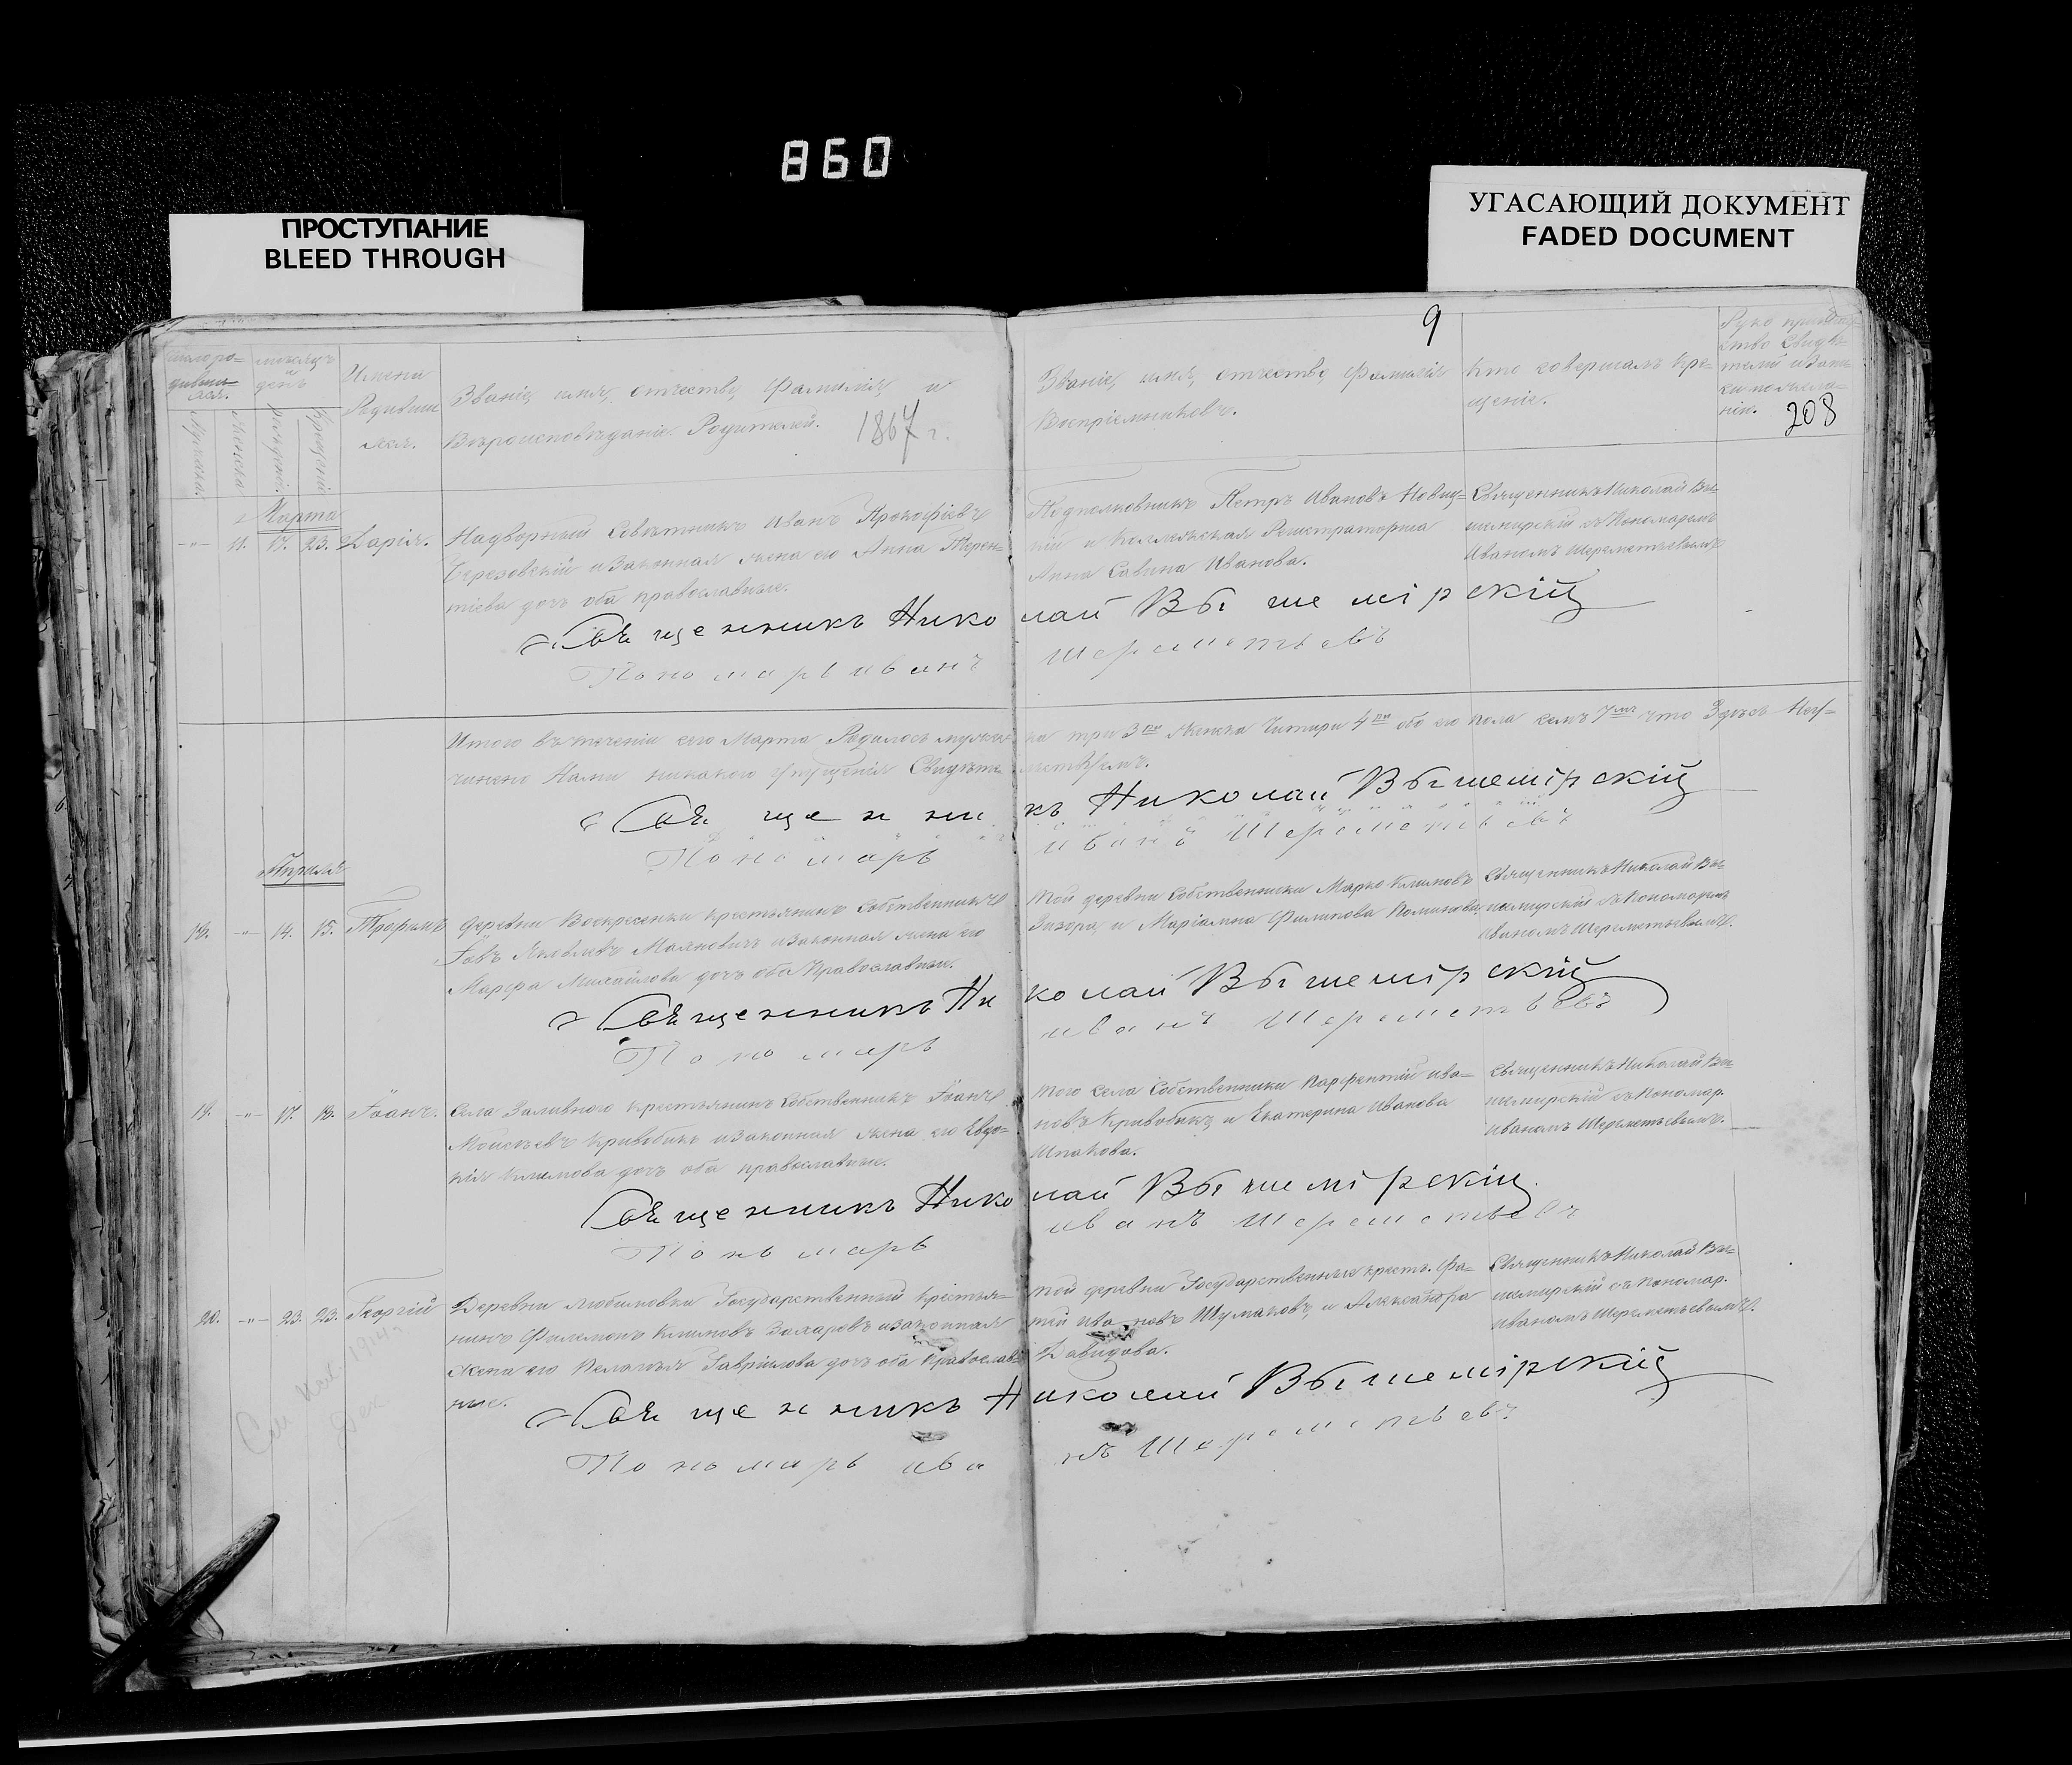 860
ПРОСТУПАНИЕ
BLEED THROUGH
УГАСАЮЩИЙ ДОКУМЕНТ
FADED DOCUMENT
9
208
Имена
Родивши
хся.
Званіе, имя, отчество, фамилія, и
Вѣроисповѣданіе Родителей.
1867 г.
Званіе, имя, отчество, фамилія
Воспріемниковъ.
Кто совершалъ кре-
щеніе.
Марта
11. 17. 23. Дарія.
Надворный Совѣтникъ Иванъ Прокофіевъ
Березовскій и законная жена его Анна Терен-
тіева дочь оба православные.
Подполковникъ Петръ Ивановъ Новиц-
кій и Коллежская Регистраторша
Анна Савина Иванова.
Священникъ Николай Вы-
шемирскій съ Пономаремъ
Иваномъ Шереметьевымъ
Священникъ Николай Вышемірскій
Пономарь Иванъ Шереметьевъ
Итого въ теченіи сего Марта Родилось мужеска три 3 Женска Читири 4 обоего пола семь 7 что Здѣсь Неу-
чинено Нами никакого упущенія Свидѣте-
Священникъ Николай Вышемірскій
Пономарь Иванъ Шереметьевъ
Апрѣль
14. 15. Трофимъ
Деревни Воскресенки крестьянинъ Собственникъ
Іовъ Яковлевъ Маляновичъ и законная жена его
Марфа Михайлова дочь оба Православные.
Той деревни Собственники Марко Климовъ
и Маріамна Филипова
Священникъ Николай Вы-
шемирскій съ Пономаремъ
Иваномъ Шереметьевымъ.
Священникъ Николай Вышемірскій
Пономарь Иванъ Шереметьевъ
19. 17. 18. Іоанъ.
Села Заливного крестьянинъ Собственникъ Іоанъ
Моисѣевъ Кривобокъ и законная жена его Евдо-
кія Климова дочь оба православные.
Того Села Собственники Парфентій Ива-
новъ Кривобокъ и Екатерина Иванова
Шпакова.
Священникъ Николай Вы-
шемирскій съ Пономар.
Иваномъ Шереметьевымъ.
Священникъ Николай Вышемірскій
Пономарь Иванъ Шереметьевъ
20. 23. 23. Георгій
Деревни Любимовки Государственный крестья-
нинъ Филимонъ Климовъ Захаровъ и законная
жена его Пелагѣя Гавріилова дочь оба Православ-
ные.
Той деревни Государственные крест. Фо-
тій Ивановъ Шумаковъ, и Александра
Давидова.
Священникъ Николай Вы-
шемирскій съ Пономар.
Иваномъ Шереметьевымъ.
Священникъ Николай Вышемірскій
Пономарь Иванъ Шереметьевъ